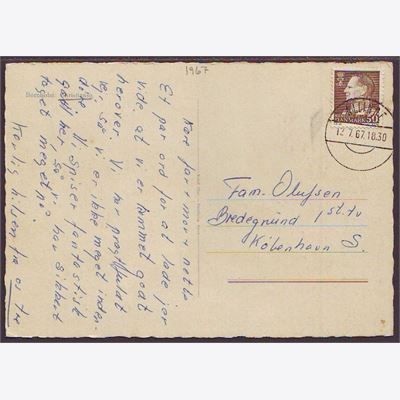 1967
Kære far mor + nette
Et par ord for at lade jer
vide at vi er kommet godt
herover. Vi har pragtfuldt
vejr, så vi er ikke meget inden-
døre. Vi spiser fantastisk
godt her, så vi har sikkert
taget meget på.
Kærlig hilsen fra os
DANMARK 50
12.7.67.18.30
Fam. Olufsen
Bredegrund 1 st. tv
København S.